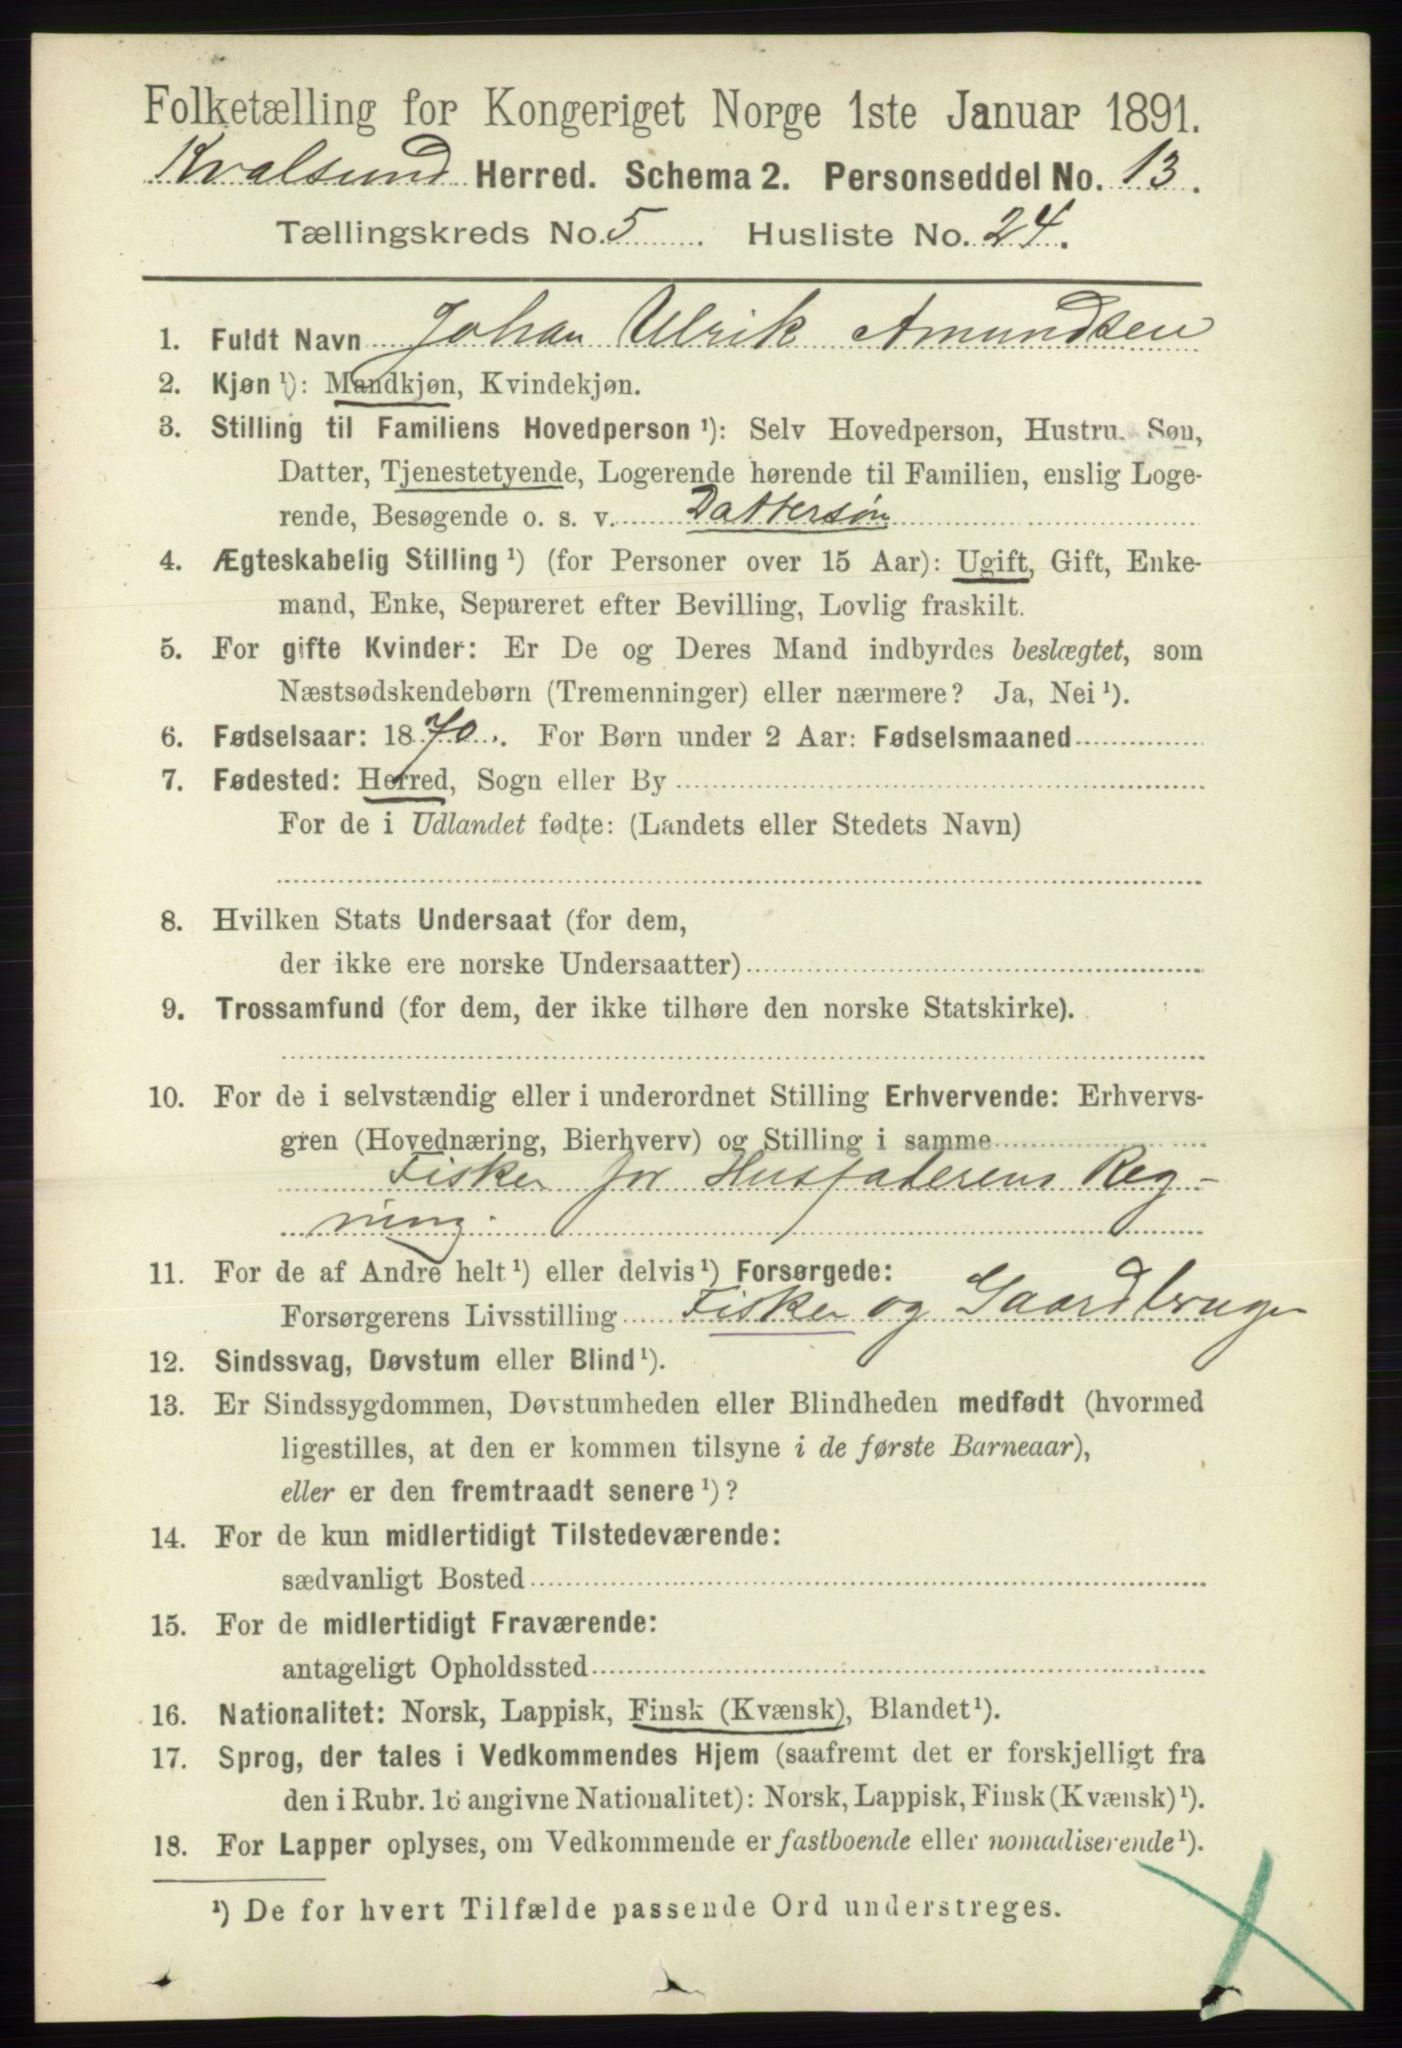 Folketælling for Kongeriget Norge 1ste Januar 1891.
Kvalsund Herred. Schema 2. Personseddel No. 13.
Tællingskreds No. 5. Husliste No. 24.
1. Fuldt Navn Johan Ulrik Amundsen
2. Kjøn¹): Mandkjøn, Kvindekjøn.
3. Stilling til Familiens Hovedperson¹): Selv Hovedperson, Hustru, Søn,
Datter, Tjenestetyende, Logerende hørende til Familien, enslig Loge-
rende, Besøgende o. s. v. Dattersøn
4. Ægteskabelig Stilling¹) (for Personer over 15 Aar): Ugift, Gift, Enke-
mand, Enke, Separeret efter Bevilling, Lovlig fraskilt.
5. For gifte Kvinder: Er De og Deres Mand indbyrdes beslægtet, som
Næstsødskendebørn (Tremenninger) eller nærmere? Ja, Nei¹).
6. Fødselsaar: 1870. For Børn under 2 Aar: Fødselsmaaned
7. Fødested: Herred, Sogn eller By
For de i Udlandet fødte: (Landets eller Stedets Navn)
8. Hvilken Stats Undersaat (for dem,
der ikke ere norske Undersaatter)
9. Trossamfund (for dem, der ikke tilhøre den norske Statskirke).
10. For de i selvstændig eller i underordnet Stilling Erhvervende: Erhvervs-
gren (Hovednæring, Bierhverv) og Stilling i samme
Fisker for Husfaderens Reg-
ning.
11. For de af Andre helt¹) eller delvis¹) Forsørgede:
Forsørgerens Livsstilling Fisker og Gaardbruger
12. Sindssvag, Døvstum eller Blind¹).
13. Er Sindssygdommen, Døvstumheden eller Blindheden medfødt (hvormed
ligestilles, at den er kommen tilsyne i de første Barneaar),
eller er den fremtraadt senere¹)?
14. For de kun midlertidigt Tilstedeværende:
sædvanligt Bosted
15. For de midlertidigt Fraværende:
antageligt Opholdssted
16. Nationalitet: Norsk, Lappisk, Finsk (Kvænsk), Blandet¹).
17. Sprog, der tales i Vedkommendes Hjem (saafremt det er forskjelligt fra
den i Rubr. 16 angivne Nationalitet): Norsk, Lappisk, Finsk (Kvænsk)¹).
18. For Lapper oplyses, om Vedkommende er fastboende eller nomadiserende¹).
¹) De for hvert Tilfælde passende Ord understreges.